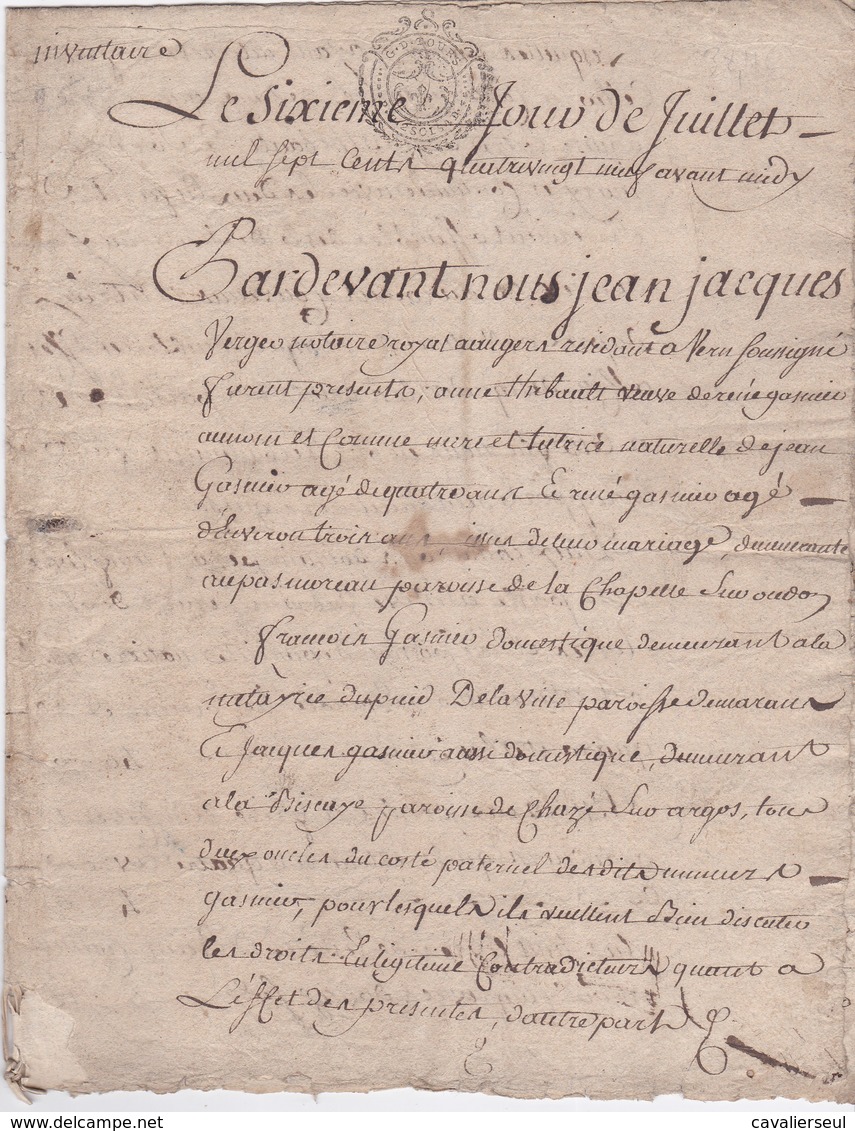 inventaire
G. D. TOURS
Le sixieme Jour de Juillet
mil sept cents quatrevingt neuf avant midy
Pardevant nous jean jacques
Verger notaire royal a angers residant a Vern soussigné
furent presents, anne thibault veuve de rené gasnier
au nom et comme mere et tutrice naturelle de jean
Gasnier agé de quatre ans & rené gasnier agé
d'Environ trois ans issus de leur mariage, demeurante
au pas moreau paroisse de la Chapelle sur oudon
francois Gasnier domestique demeurant a la
metayrie du puid De la Ville paroisse de marans
& Jacques gasnier aussi domestique, demeurant
a la Biscaye paroisse de Chazé sur argos, tous
deux oncles du costé paternel desdits mineurs
gasnier, pour lesquels ils veullent Bien discuter
les droits En legitime Contradicteurs quant a
L'effet des presentes, d'autre part &.
cavalierseul